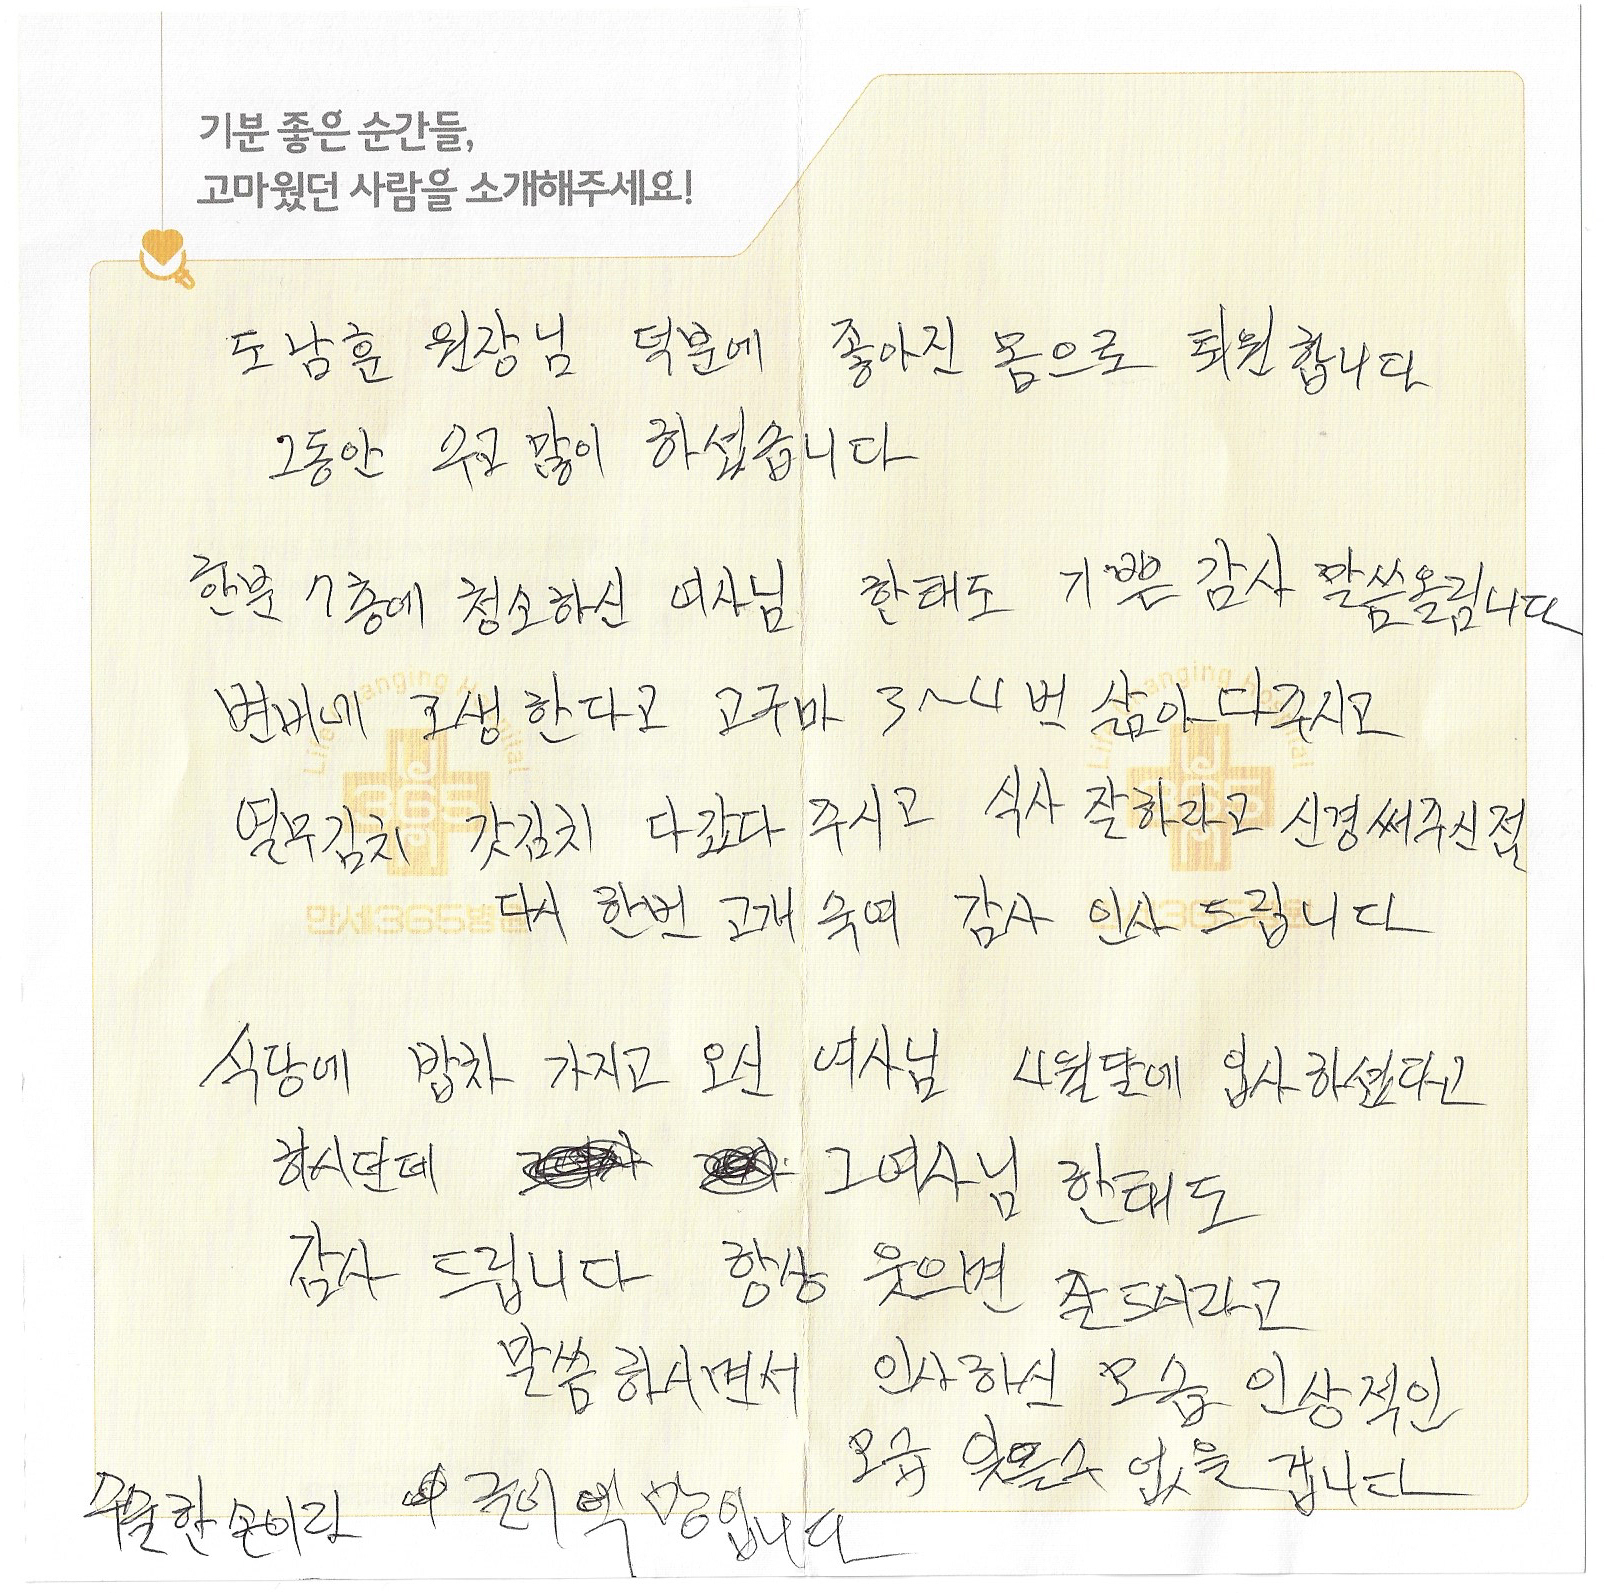 기분 좋은 순간들,
고마웠던 사람을 소개해주세요!
도남훈 원장님 덕분에 좋아진 몸으로 퇴원합니다
그동안 수고 많이 하셨습니다
한분 7층에 청소하신 여사님 한태도 기쁜 감사 말씀올림니다
변버에 고생한다고 고구마 3~4번 삶아다주시고
열무김치 갓김치 다갔다 주시고 식사 잘하라고 신경써주신점
다시 한번 고개 숙여 감사 인사 드립니다
식당에 밥차 가지고 오신 여사님 4월달에 입사하셨다고
하시단데 그여사님 한태도
감사 드립니다 항상 웃으면 잘드더라고
말씀 하시면서 인사하신 모습 인상적인
모습 잊을수 없을 겁니다
수술한 손이라 글이 엉망입니다
Life Changing Hospital
365
만세365병원